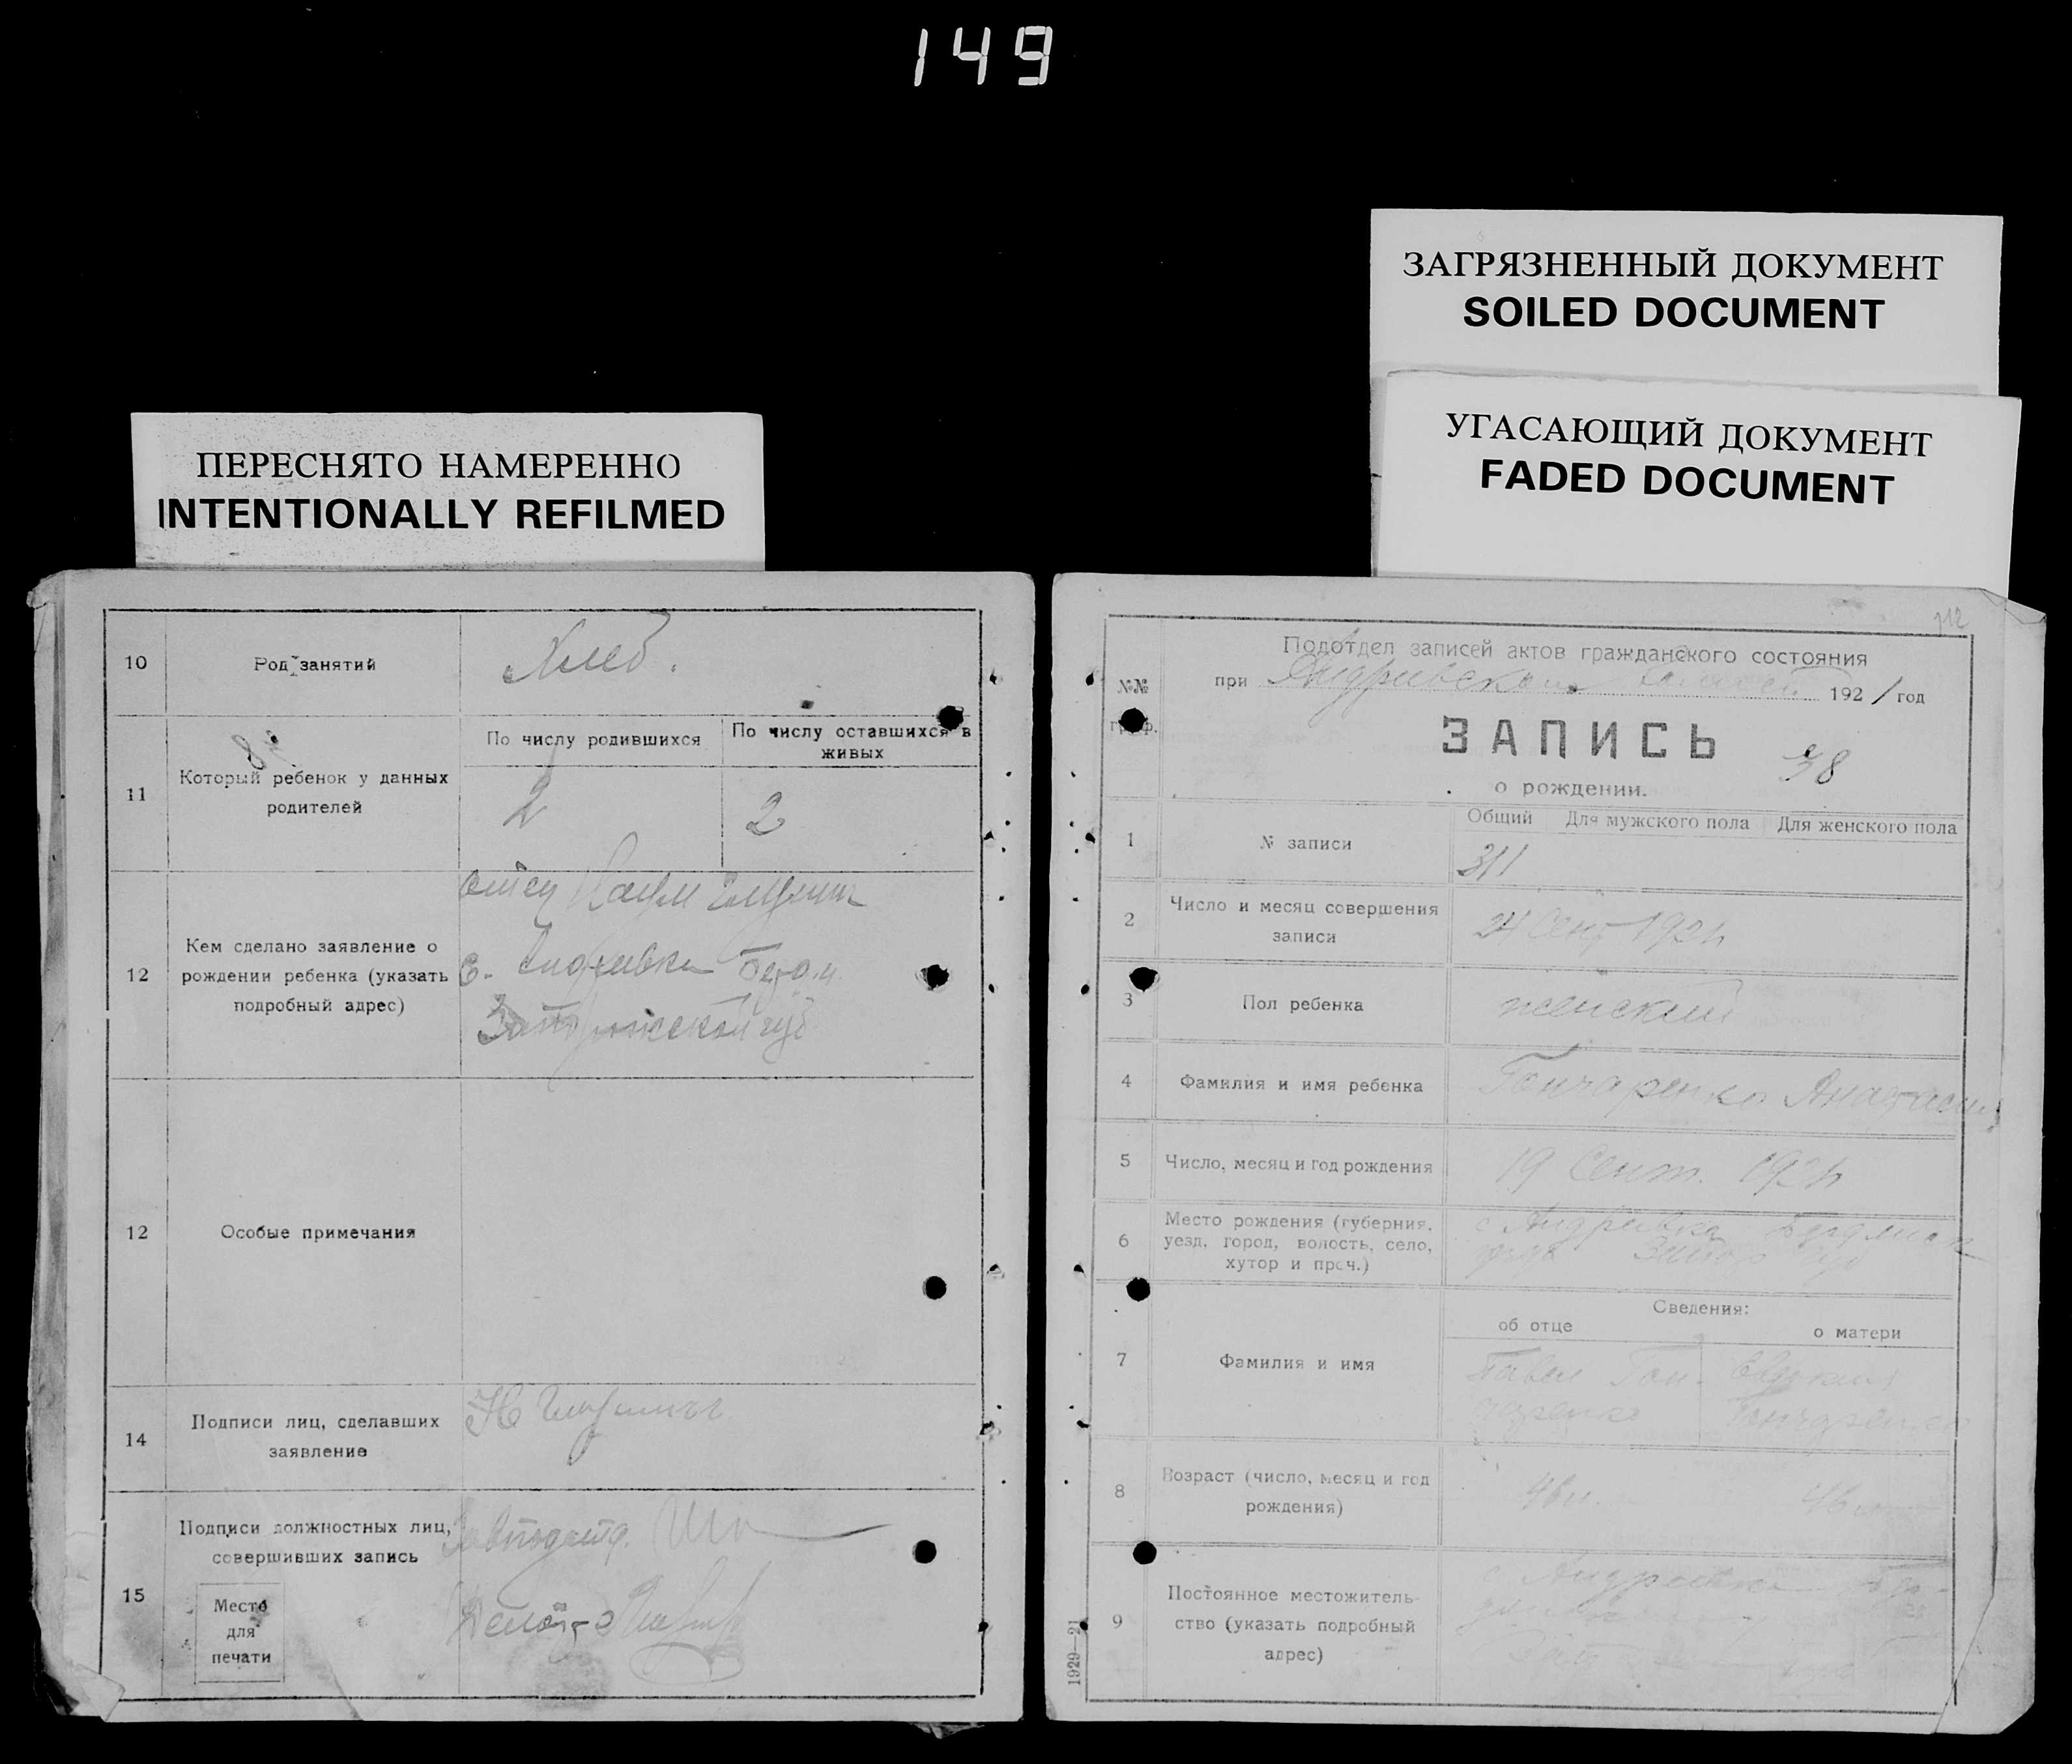 149
ЗАГРЯЗНЕННЫЙ ДОКУМЕНТ
SOILED DOCUMENT
УГАСАЮЩИЙ ДОКУМЕНТ
FADED DOCUMENT
ПЕРЕСНЯТО НАМЕРЕННО
INTENTIONALLY REFILMED
10
Род занятий
Хлеб.
11
Который ребенок у данных
родителей
По числу родившихся
По числу оставшихся в
живых
2
2
12
Кем сделано заявление о
рождении ребенка (указать
подробный адрес)
отец Наум
с. Андреевка Берд.
Запорожской губ
12
Особые примечания
14
Подписи лиц, сделавших
заявление
Н
15
Подписи должностных лиц,
совершивших запись
Завподотд.
Место
для
печати
112
№№
граф.
Подотдел записей актов гражданского состояния
при Андреевском 1921 год
ЗАПИСЬ
о рождении.
38
1
№ записи
Общий
Для мужского пола
Для женского пола
311
2
Число и месяц совершения
записи
24 Сент 1921
3
Пол ребенка
женский
4
Фамилия и имя ребенка
Гончаренко Анастасия
5
Число, месяц и год рождения
19 Сент. 1921
6
Место рождения (губерния,
уезд, город, волость, село,
хутор и проч.)
с Андреевка Бердянск
Запор губ
Сведения:
об отце
о матери
7
Фамилия и имя
Павел Гон-
чаренко
Евдокия
Гончаренко
8
Возраст (число, месяц и год
рождения)
9
Постоянное местожитель-
ство (указать подробный
адрес)
с Андреевка
1929—21